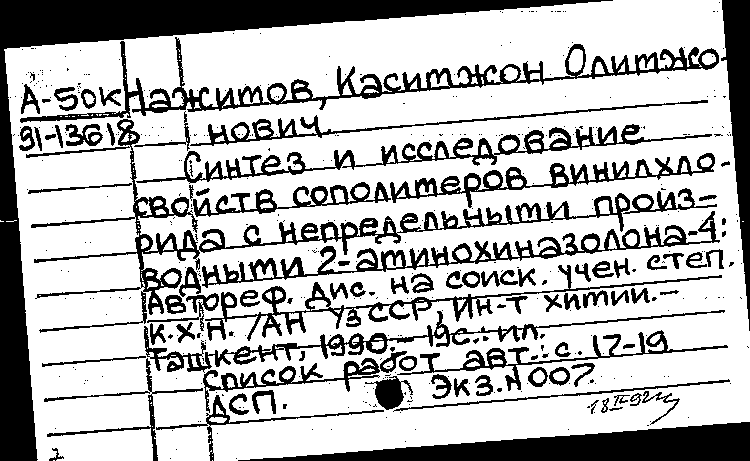 А-50к Нажимов, Касимжон Олимжо-
91-13618 нович.
Синтез и исследование
свойств сополимеров винилхло-
рида с непредельными произ-
водными 2-аминохиназолона-4:
Автореф. дис. на соиск. учен. степ.
к.х.н. /АН УзССР, Ин-т химии.-
Ташкент, 1990.- 19с.: ил.
Список работ авт.: с. 17-19
ДСП. Экз.N 007.